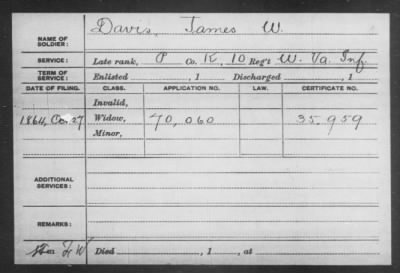 NAME OF SOLDIER: Davis, James W.
SERVICE: Late rank, P Co. K, 10 Reg't W. Va. Inf
TERM OF SERVICE: Enlisted , 1 Discharged , 1
DATE OF FILING. CLASS. APPLICATION NO. LAW. CERTIFICATE NO.
Invalid,
1864, Oc. 27 Widow, 70,060 35.959
Minor,
ADDITIONAL SERVICES:
REMARKS:
Died , 1 , at